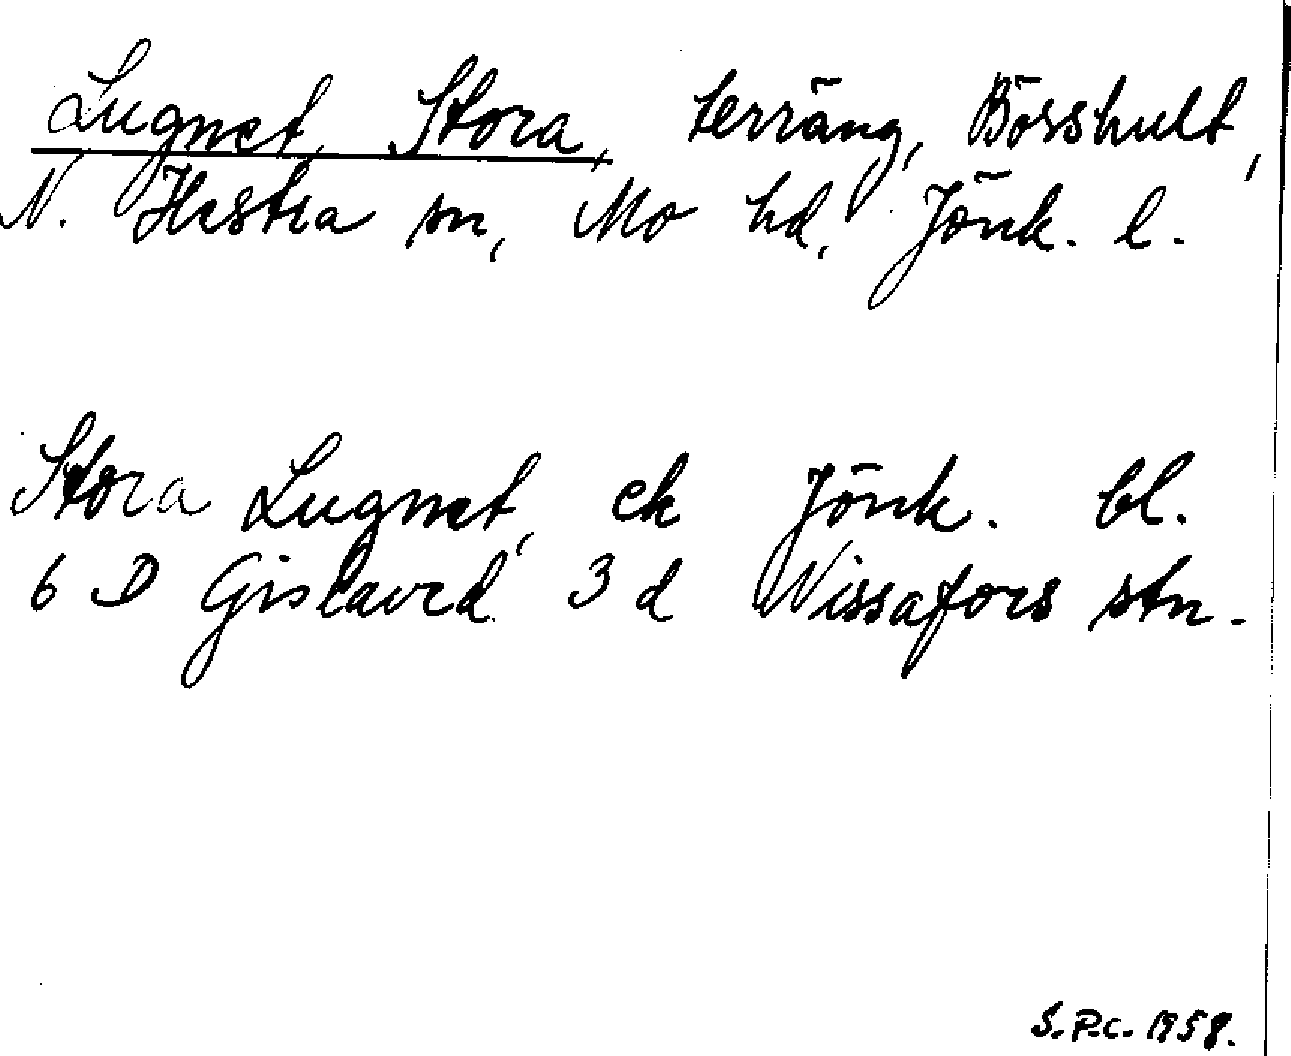 Lugnet, Stora, terräng, Bösshult,
N. Hestra sn, Mo hd, Jönk. l.
Stora Lugnet, ek Jönk. bl.
6 D Gislaved 3 d Nissafors stn.
S.P.C. 1958.